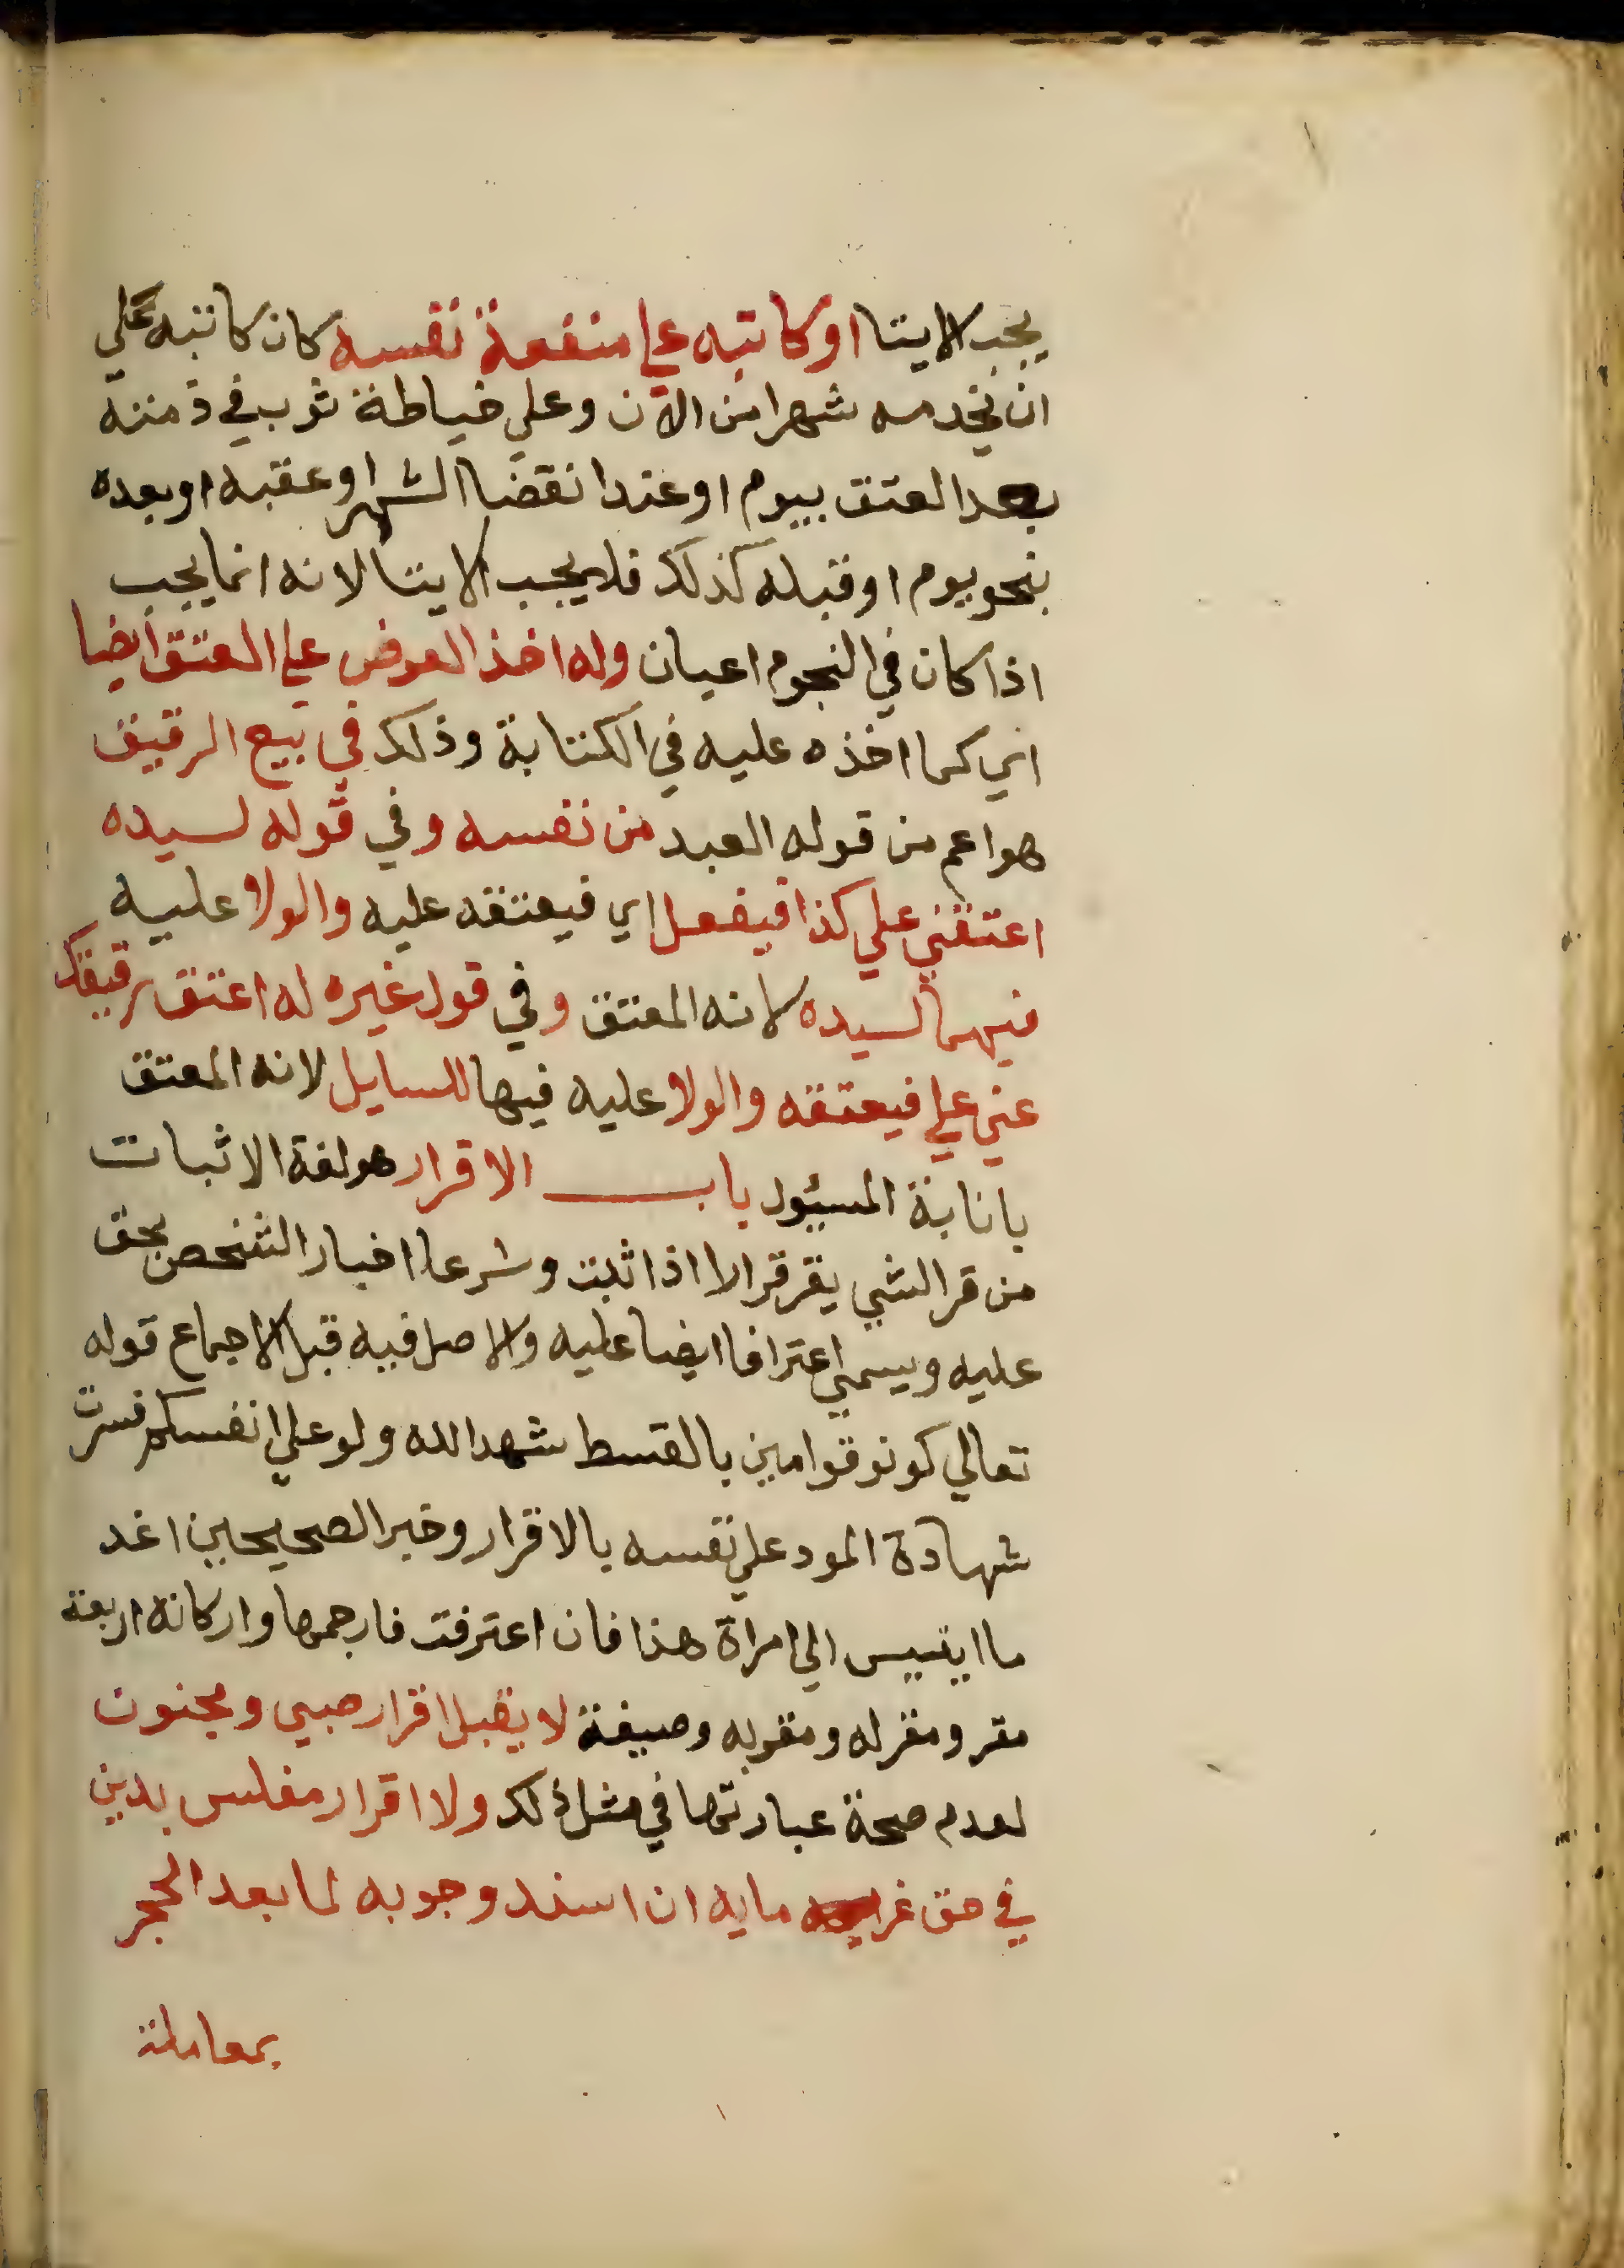 يجب الايتا او كاتبه علي منفعة نفسه كان كاتبه علي
ان يخدمه شهرا من الآن وعلي خياطة ثوب في ذمته
بعد العتق بيوم او عند انقضا الشهر او عقبه او بعده
بنحو يوم او قبله كذلك فلا يجب الايتا لانه انما يجب
اذا كان في النجوم اعيان وله اخذ العوض علي العتق ايضا
اي كما اخذه عليه في الكتابة وذلك في بيع الرقيق
هو اعم من قوله العبد من نفسه وفي قوله لسيده
اعتقني علي كذا فيفعل اي فيعتقه عليه والولا عليه
فيهما لسيده لانه المعتق وفي قول غيره له اعتق رقيقك
عني علي فيعتقه والولا عليه فيها للسايل لانه المعتق
بانابة المسيول باب الاقرار هو لغة الاثبات
من قر الشي يقر قرارا اذا ثبت وشرعا اخبار الشخص بحق
عليه ويسمي اعترافا ايضا عليه والاصل فيه قبل الاجماع قوله
تعالي كونو قوامين بالقسط شهدا لله ولو علي انفسكم فسرت
شهادة المود علي نفسه بالاقرار وخبر الصحيحين اغد
ما ايتيس الي امراة هذا فان اعترفت فارجمها واركانه اربعة
مقر ومقر له ومقر به وصيغة لا يقبل اقرار صبي ومجنون
لعدم صحة عبارتها في مثل ذلك ولا اقرار مفلس بدين
في حق غرايه مايه ان اسند وجوبه لما بعد الحجر
بمعاملة